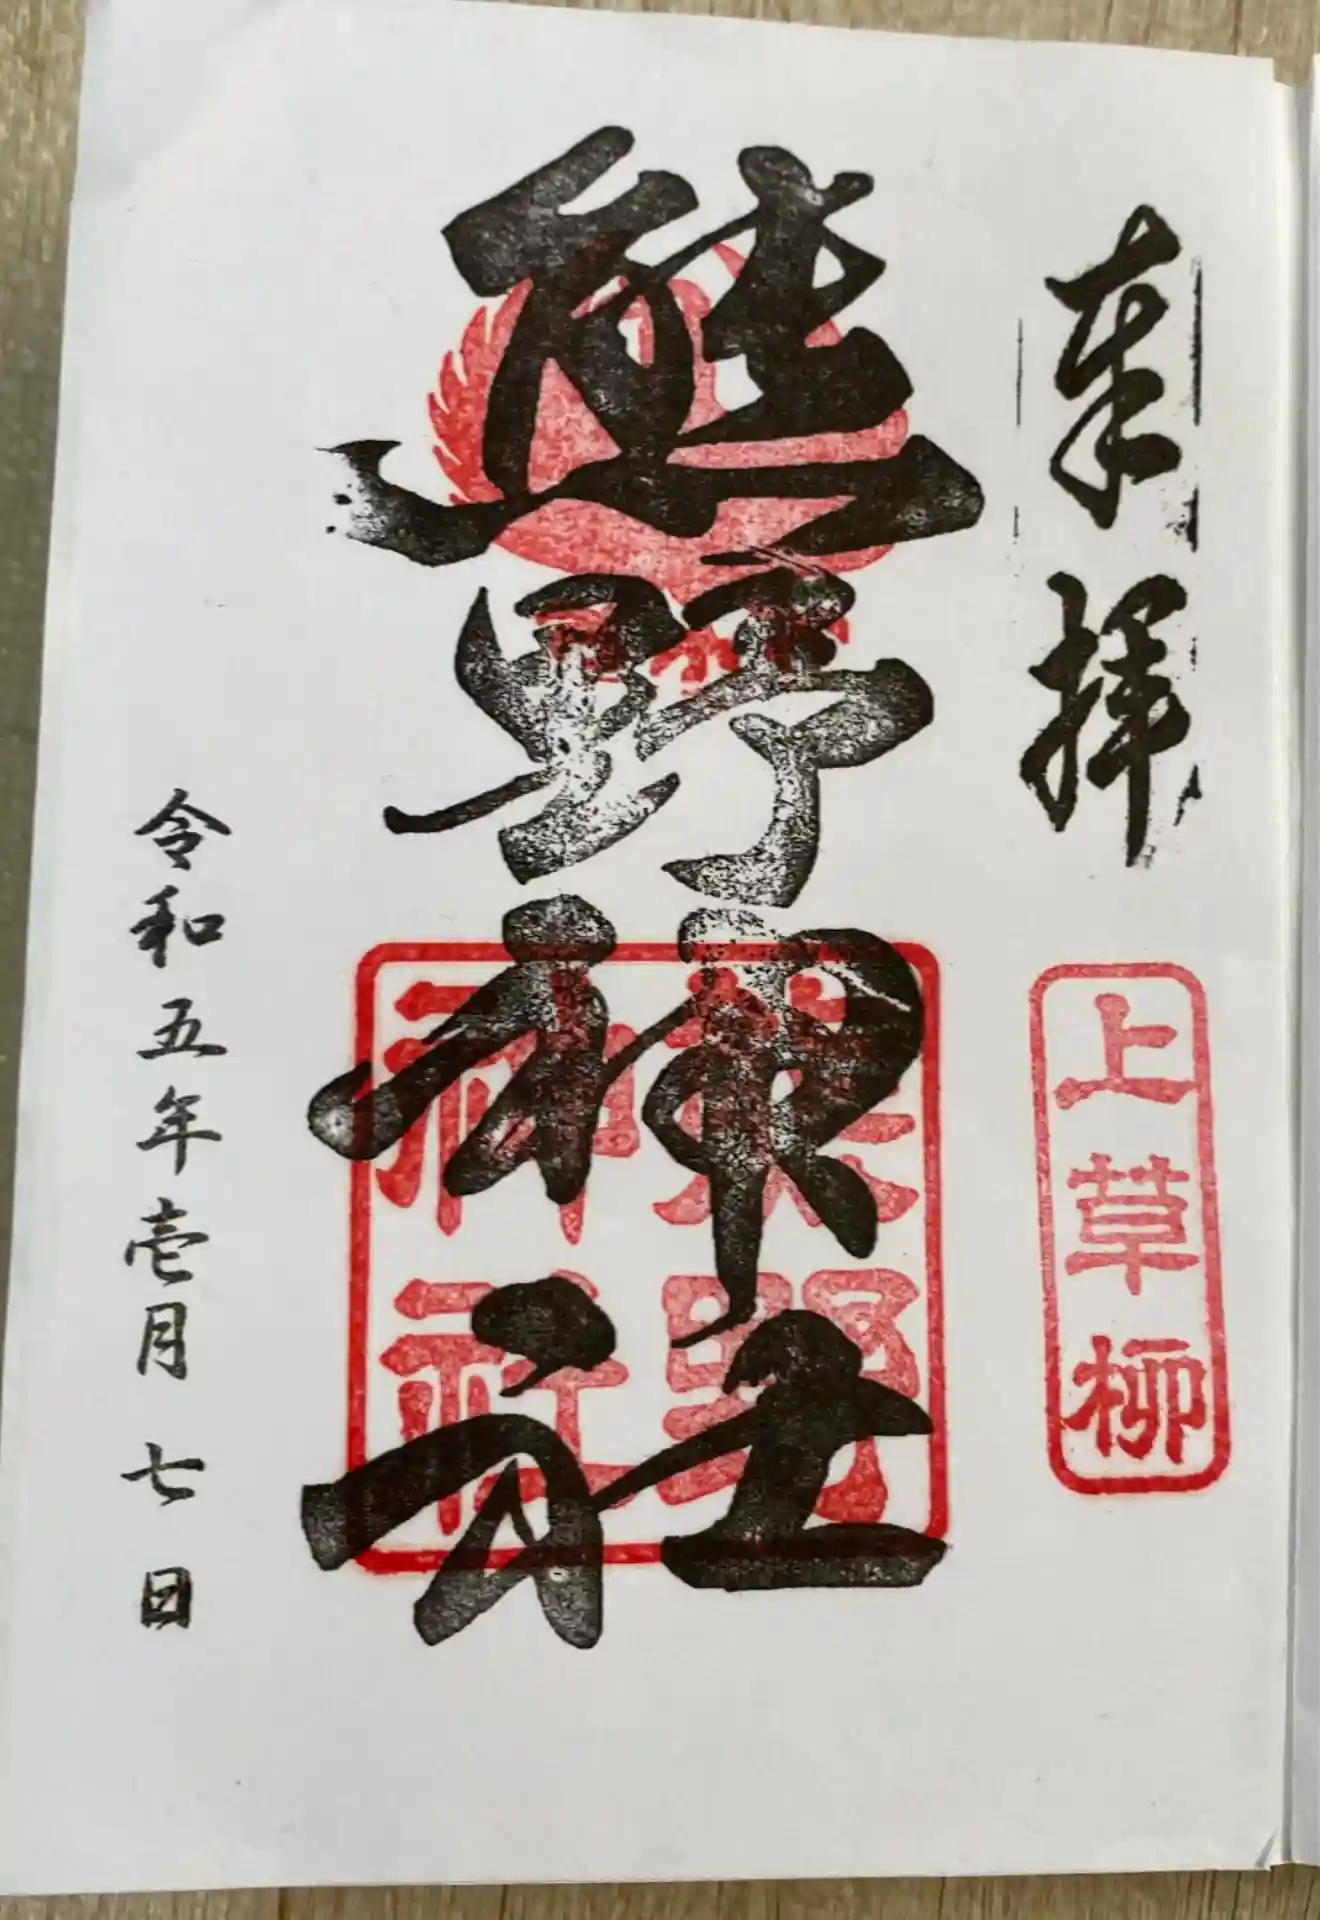 奉拝
上草柳
熊野神社
熊野
神社
令和五年壱月七日